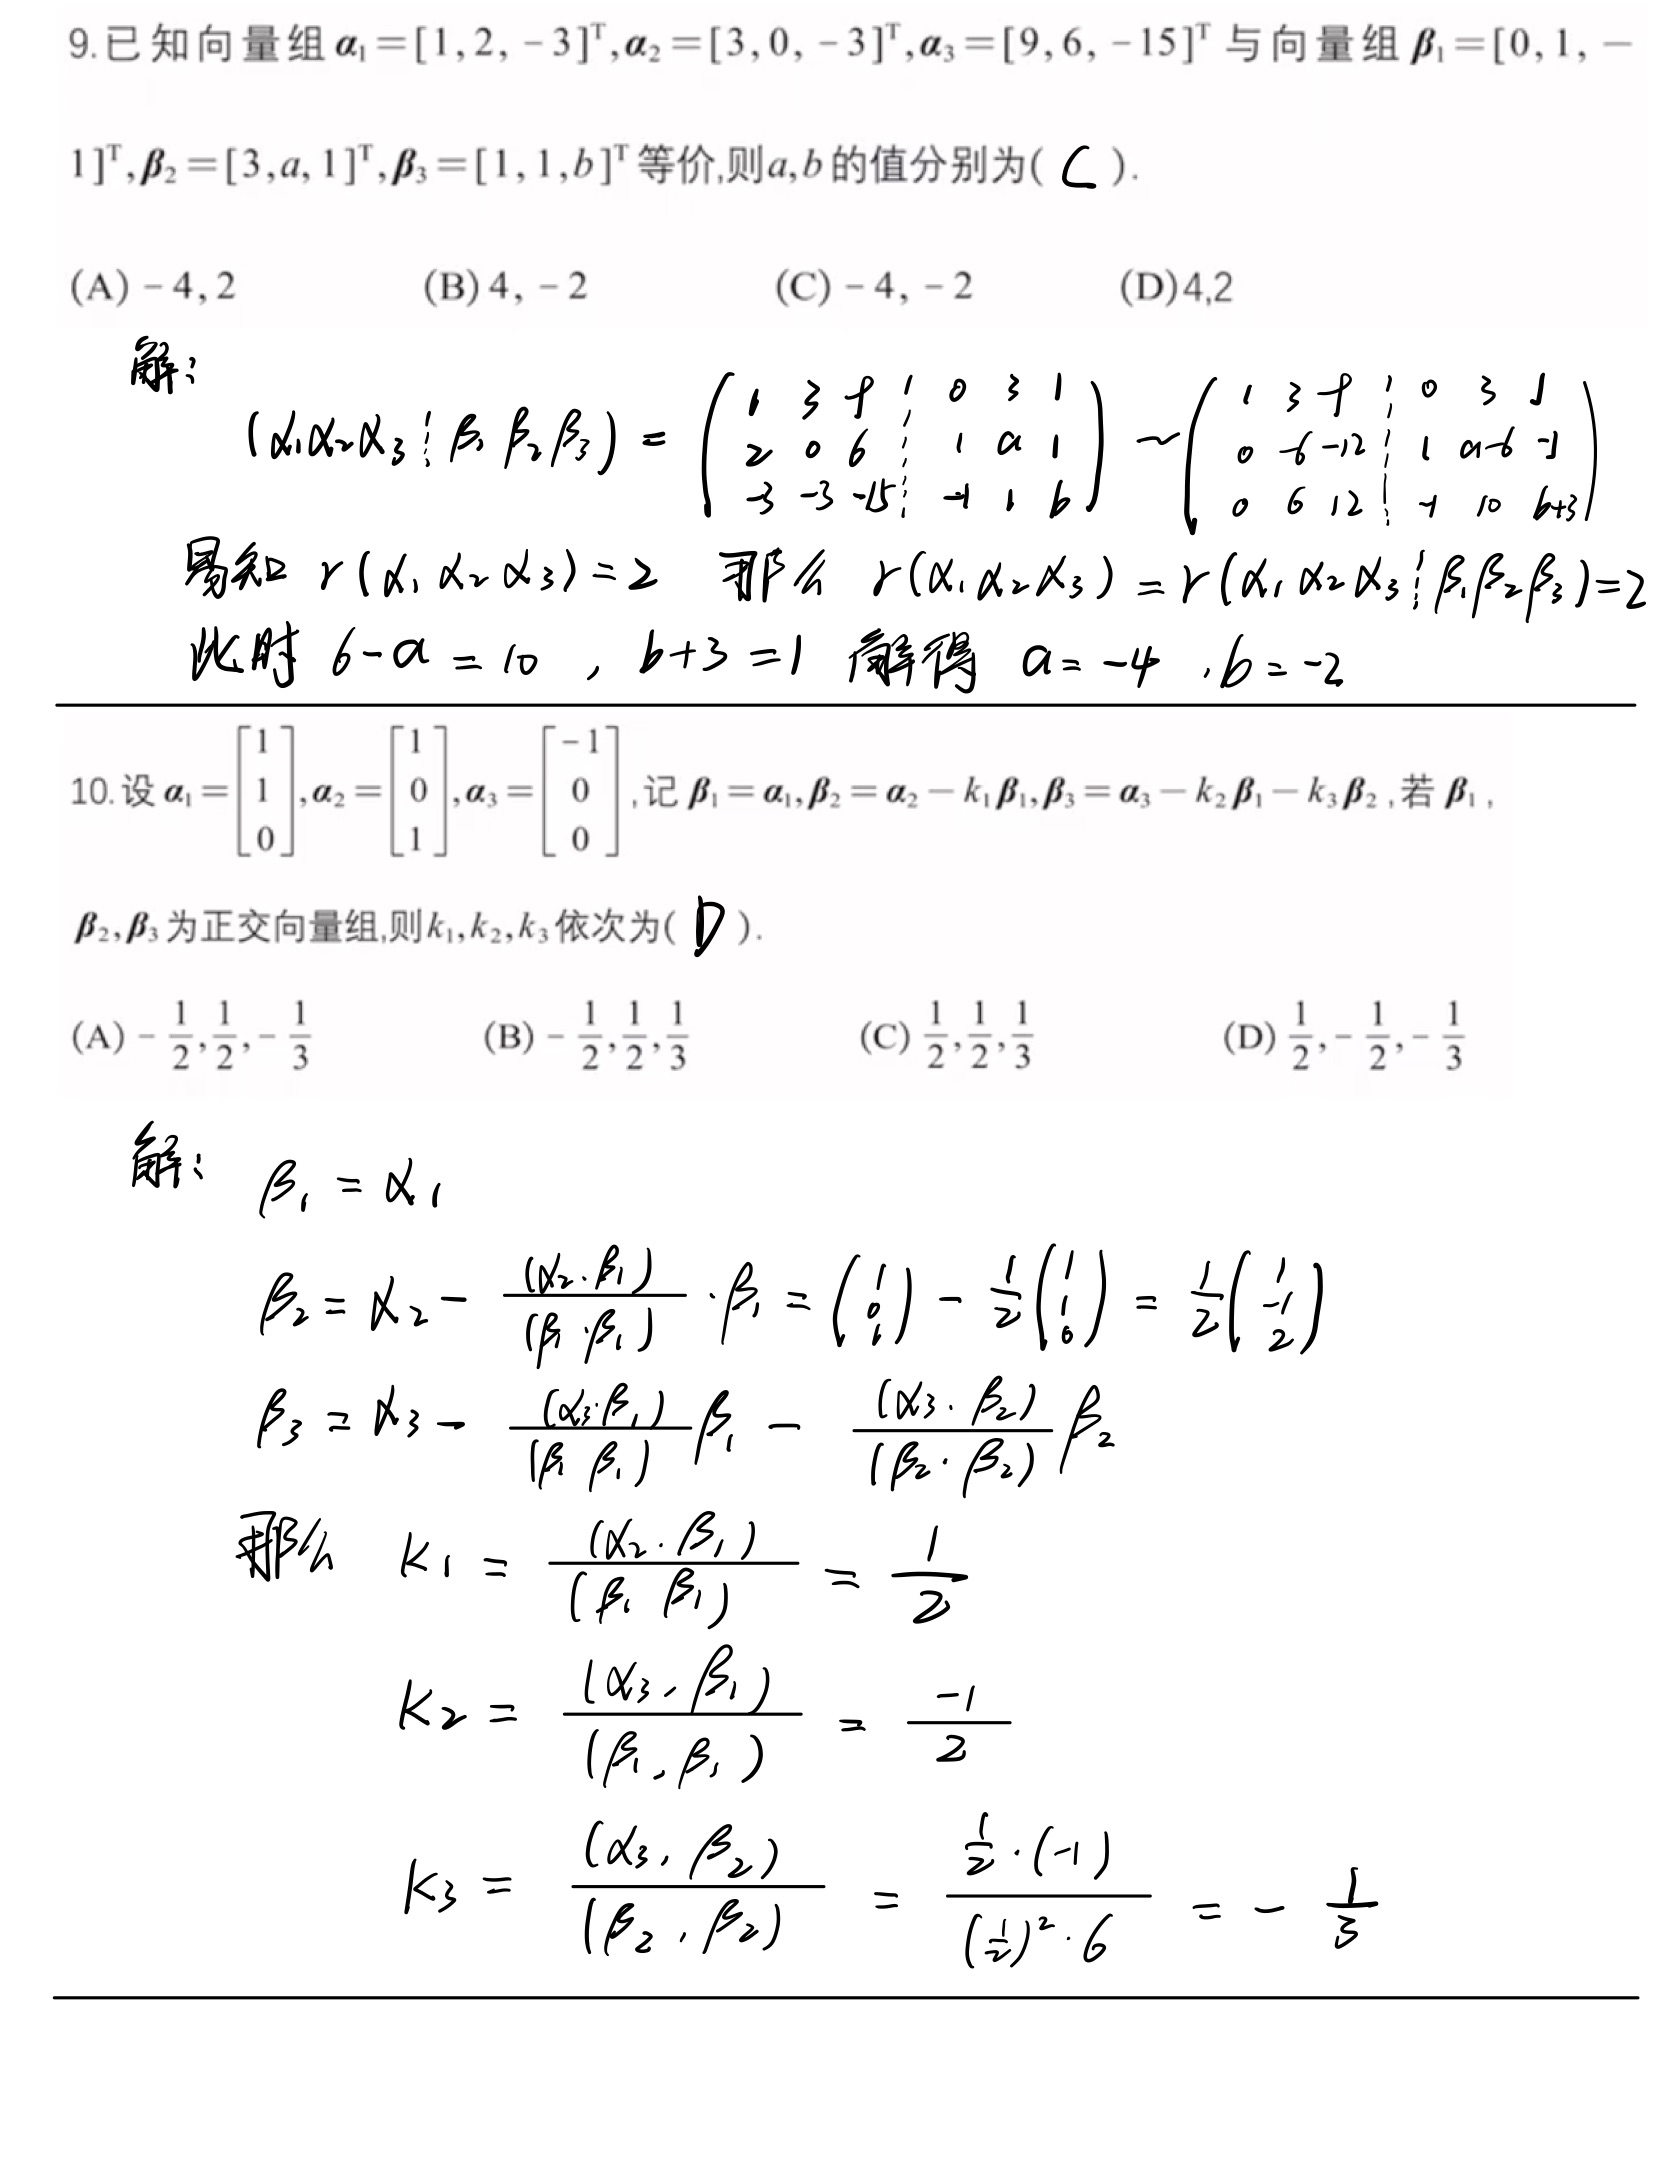 9.已知向量组 α₁=[1,2,-3]ᵀ,α₂=[3,0,-3]ᵀ,α₃=[9,6,-15]ᵀ 与向量组 β₁=[0,1,-
1]ᵀ,β₂=[3,a,1]ᵀ,β₃=[1,1,b]ᵀ 等价,则a,b的值分别为( C ).
(A) -4,2 (B) 4,-2 (C) -4,-2 (D) 4,2
解:
(α₁α₂α₃ ⋮ β₁ β₂ β₃) = (1 3 9 ⋮ 0 3 1; 2 0 6 ⋮ 1 a 1; -3 -3 -15 ⋮ -1 1 b) ~ (1 3 9 ⋮ 0 3 1; 0 -6 -12 ⋮ 1 a-6 -1; 0 6 12 ⋮ -1 10 b+3)
易知 r(α₁ α₂ α₃)=2 那么 r(α₁α₂α₃) = r(α₁ α₂ α₃ ⋮ β₁β₂β₃)=2
此时 6-a = 10 , b+3 =1 解得 a = -4 , b = -2
10.设 α₁=[1 1 0],α₂=[1 0 1],α₃=[-1 0 0],记 β₁=α₁,β₂=α₂-k₁β₁,β₃=α₃-k₂β₁-k₃β₂,若 β₁,
β₂,β₃为正交向量组,则k₁,k₂,k₃依次为( D ).
(A) -1/2,1/2,-1/3 (B) -1/2,1/2,1/3 (C) 1/2,1/2,1/3 (D) 1/2,-1/2,-1/3
解: β₁ = α₁
β₂ = α₂ - (α₂·β₁)/(β₁·β₁) ·β₁ = (1 0 1) - 1/2(1 1 0) = 1/2(1 -1 2)
β₃ = α₃ - (α₃·β₁)/(β₁ β₁) β₁ - (α₃·β₂)/(β₂·β₂) β₂
那么 K₁ = (α₂·β₁)/(β₁ β₁) = 1/2
K₂ = (α₃,β₁)/(β₁,β₁) = -1/2
K₃ = (α₃,β₂)/(β₂,β₂) = 1/2·(-1)/(1/2)²·6 = - 1/3